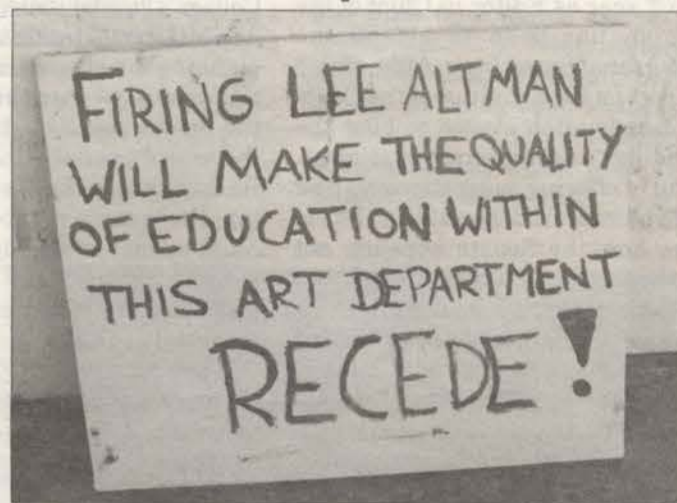 FIRING LEE ALTMAN
WILL MAKE THE QUALITY
OF EDUCATION WITHIN
THIS ART DEPARTMENT
RECEDE!